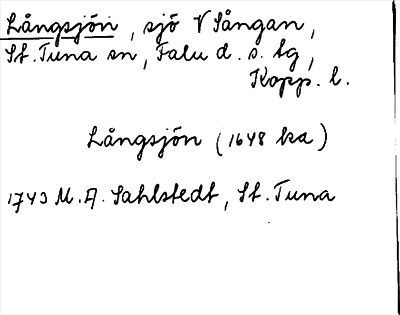 Långsjön, sjö V Sångan,
St. Tuna sn, Falu d. s. tg,
Kopp. l.
Långsjön (1648 ka)
1743 M. A. Sahlstedt, St. Tuna